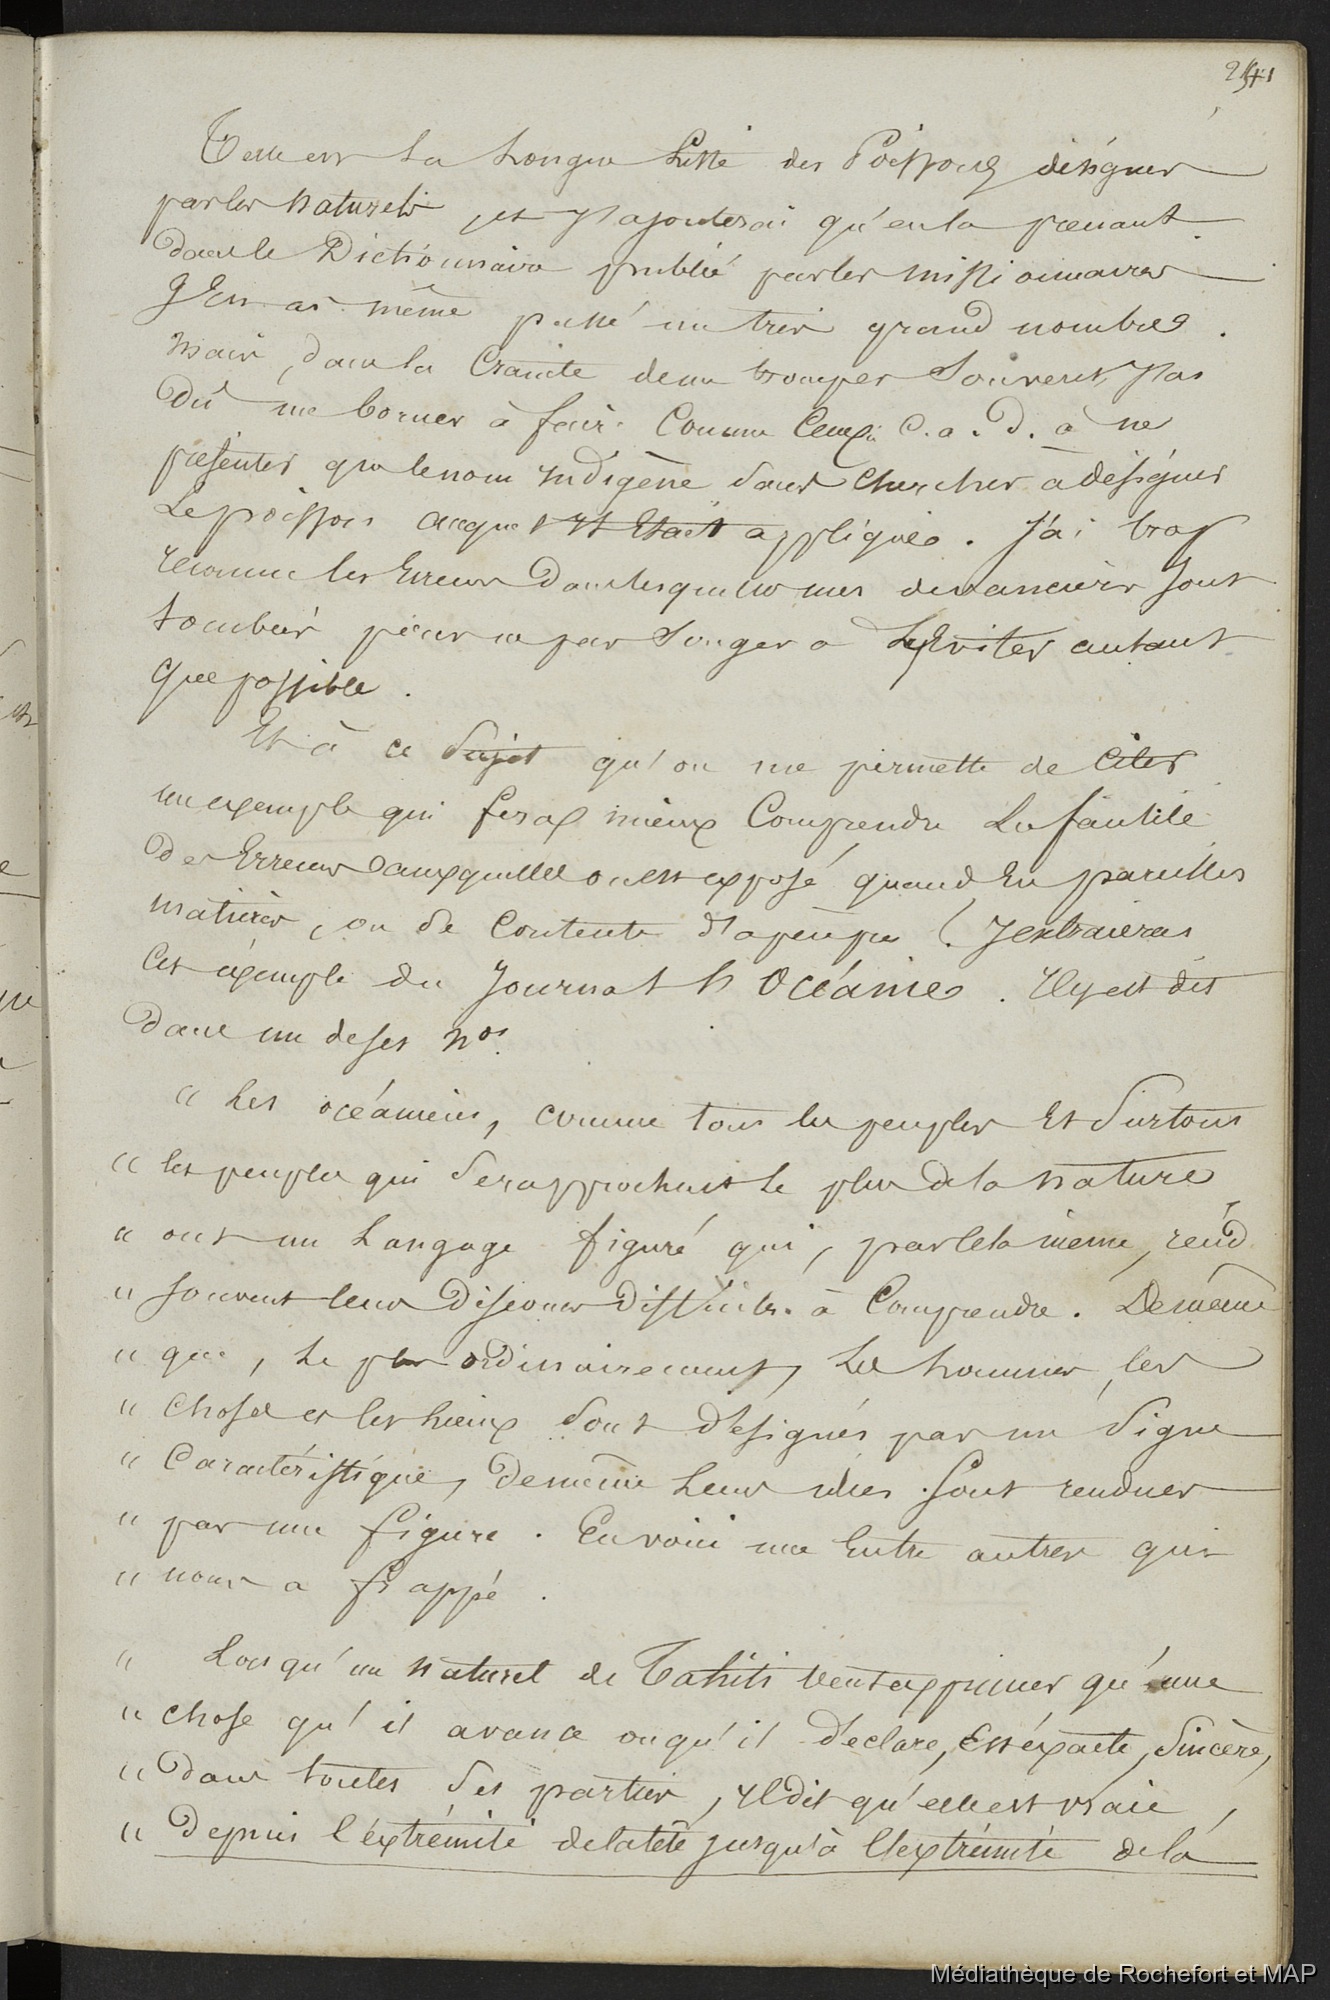 241
Telle est la longue liste des Poissons désignés
par les naturels et j'ajouterai qu'en la prenant
dans le Dictionnaire publié par les missionnaires
J'En ai même passé un très grand nombre.
Mais, dans la Crainte de me tromper Souvent, j'ai
Dû me borner à faire Comme Ceux, C. a. D. à ne
présenter que le nom indigène sans chercher à désigner
Le poisson auquel il Etait appliqué. J'ai trop
reconnu les Erreurs Dans lesquelles mes devanciers sont
tombés pour ne pas songer à les Eviter autant
que possible.
Et à ce Sujet qu'on me permette de citer
un exemple qui fera mieux Comprendre La facilité
Des Erreurs auxquelles on est exposé quand En pareilles
matières, on se Contente d'apeuprès. J'extrairai
Cet exemple du Journal l'Océanie. Il y est dit
Dans un de ses nos.
" Les océaniens, comme tous les peuples Et Surtout
" les peuples qui Se rapprochent le plus de la nature
" ont un Langage figuré qui, par cela même, rend
" souvent leur Discours difficile à Comprendre. De même
" que, le plus ordinairement, les hommes, les
" Choses et les lieux sont désignés par un Signe
" Caractéristique, De même leurs idées sont rendues
" par une figure. En voici une Entre autres qui
" nous a frappé.
" Lorsqu'un naturel de Tahiti veut exprimer qu'une
" chose qu'il avance ou qu'il déclare, Est éxacte, Sincère,
" Dans toutes Ses parties, Il dit qu'elle est vraie,
" Depuis l'éxtrémité de la tête jusqu'à l'extrémité de la
Médiathèque de Rochefort et MAP